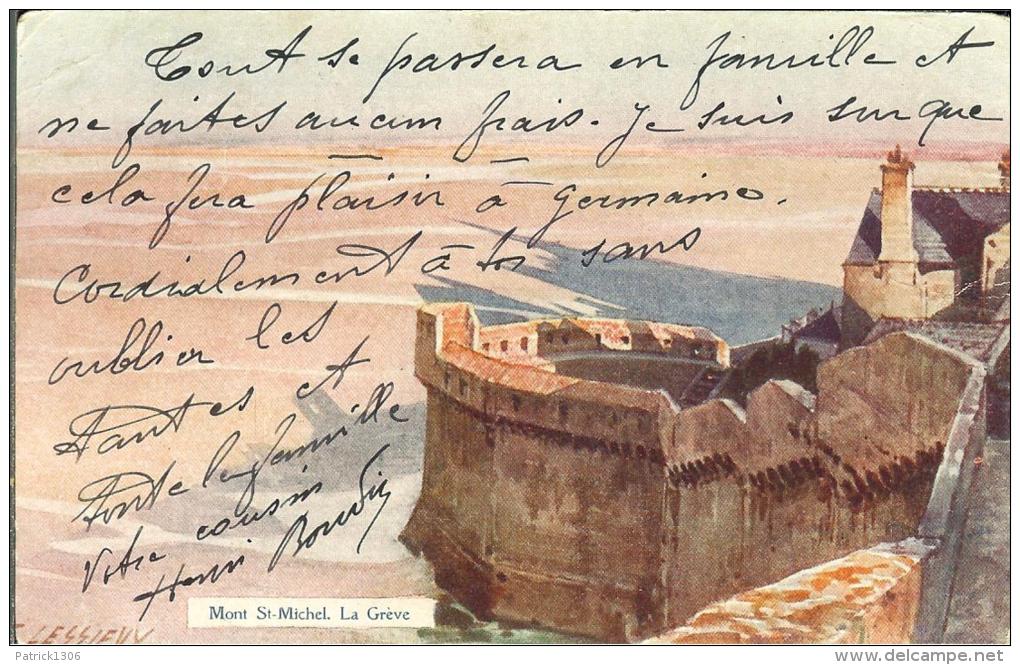 Tout se passera en famille et
ne faites aucun frais. Je suis sur que
cela fera plaisir à Germaine.
Cordialement à tos sans
oublier les
tantes et
toute la famille
Votre cousin
Henri
Mont St-Michel. La Grève
E. LESSIEUX
Patrick1306
http://www.delcampe.net